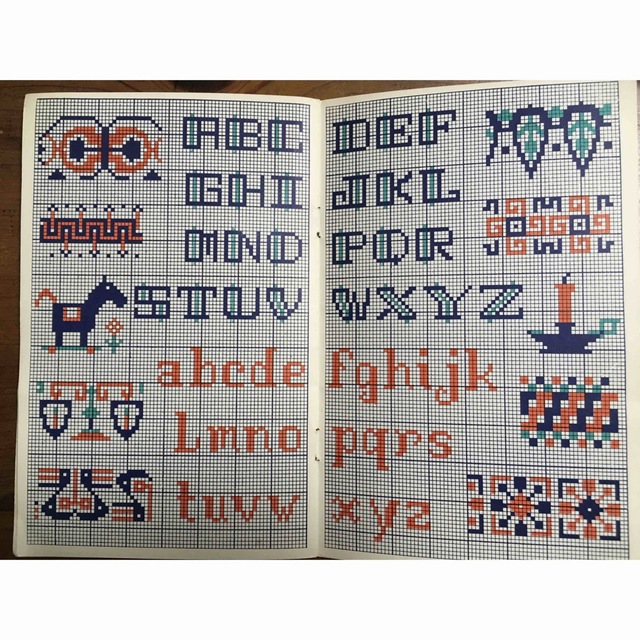 ABC DEF
GHI JKL
MNO PQR
STUV WXYZ
abcde fghijk
lmno pqrs
tuvw xyz